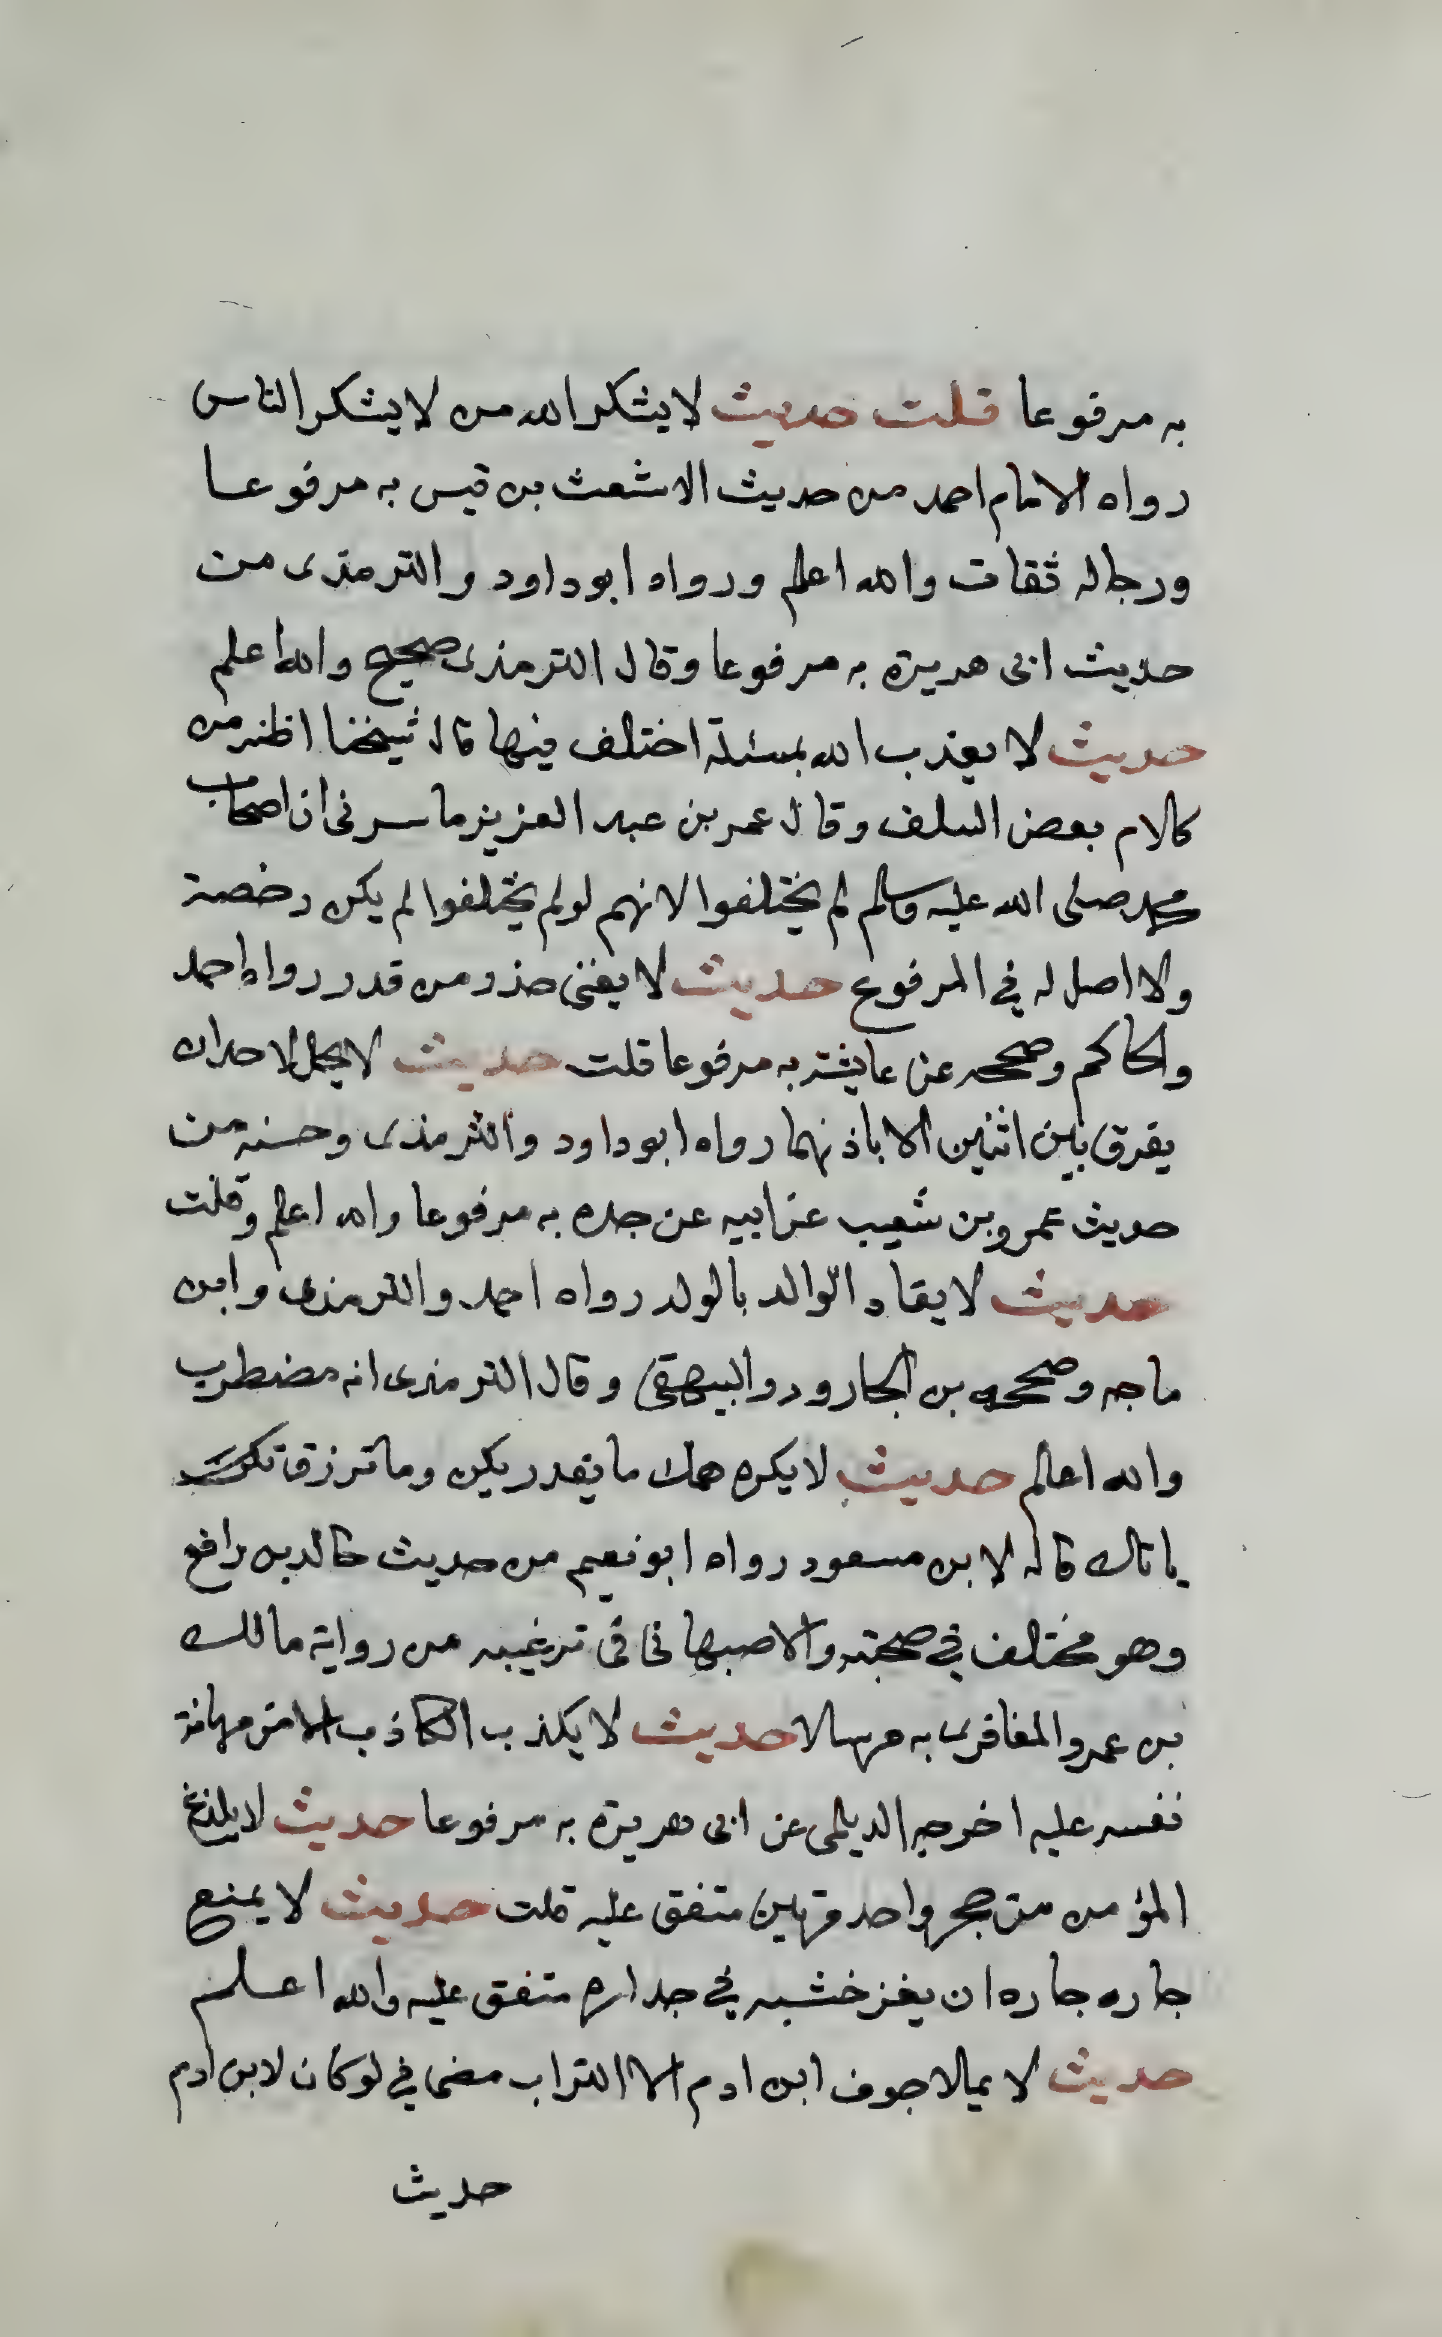 به مرفوعا قلت حديث لا يشكر الله من لا يشكر الناس
رواه الامام احمد من حديث الاشعث بن قيس به مرفوعا
ورجاله ثقات والله اعلم ورواه ابو داود والترمذى من
حديث ابى هريرة به مرفوعا وقال الترمذى صحيح والله اعلم
حديث لا يعذب الله بمسئلة اختلف فيها قال شيخنا اظنه من
كلام بعض السلف وقال عمر بن عبد العزيز ما سرنى ان اصحاب
محمد صلى الله عليه وسلم لم يختلفوا لانهم لو لم يختلفوا لم يكن رخصة
ولا اصل له في المرفوع حديث لا يغنى حذر من قدر رواه احمد
والحاكم وصححه عن عايشة به مرفوعا قلت حديث لا يحل لاحد ان
يفرق بين اثنين الا باذنهما رواه ابو داود والترمذى وحسنه من
حديث عمرو بن شعيب عن ابيه عن جده به مرفوعا والله اعلم وقلت
حديث لا يقاد الوالد بالولد رواه احمد والترمذى وابن
ماجه وصححه بن الجارود والبيهقى وقال الترمذى انه مضطرب
والله اعلم حديث لا يكره همك ما يقدر يكن وما ترزق
ياتك قاله لابن مسعود رواه ابو نعيم من حديث خالد بن رافع
وهو مختلف في صحبته والاصبهانى فى ترغيبه من رواية مالك
بن عمرو المغافرى به مرسلا حديث لا يكذب الكاذب الا من مهانة
نفسه عليه اخرجه الديلمى عن ابى هريرة به مرفوعا حديث لا يلدغ
المؤمن من جحر واحد مرتين متفق عليه قلت حديث لا يمنع
جاره جاره ان يغز خشبه في جداره متفق عليه والله اعلم
حديث لا يملا جوف ابن ادم الا التراب مضى في لو كان لابن ادم
حديث